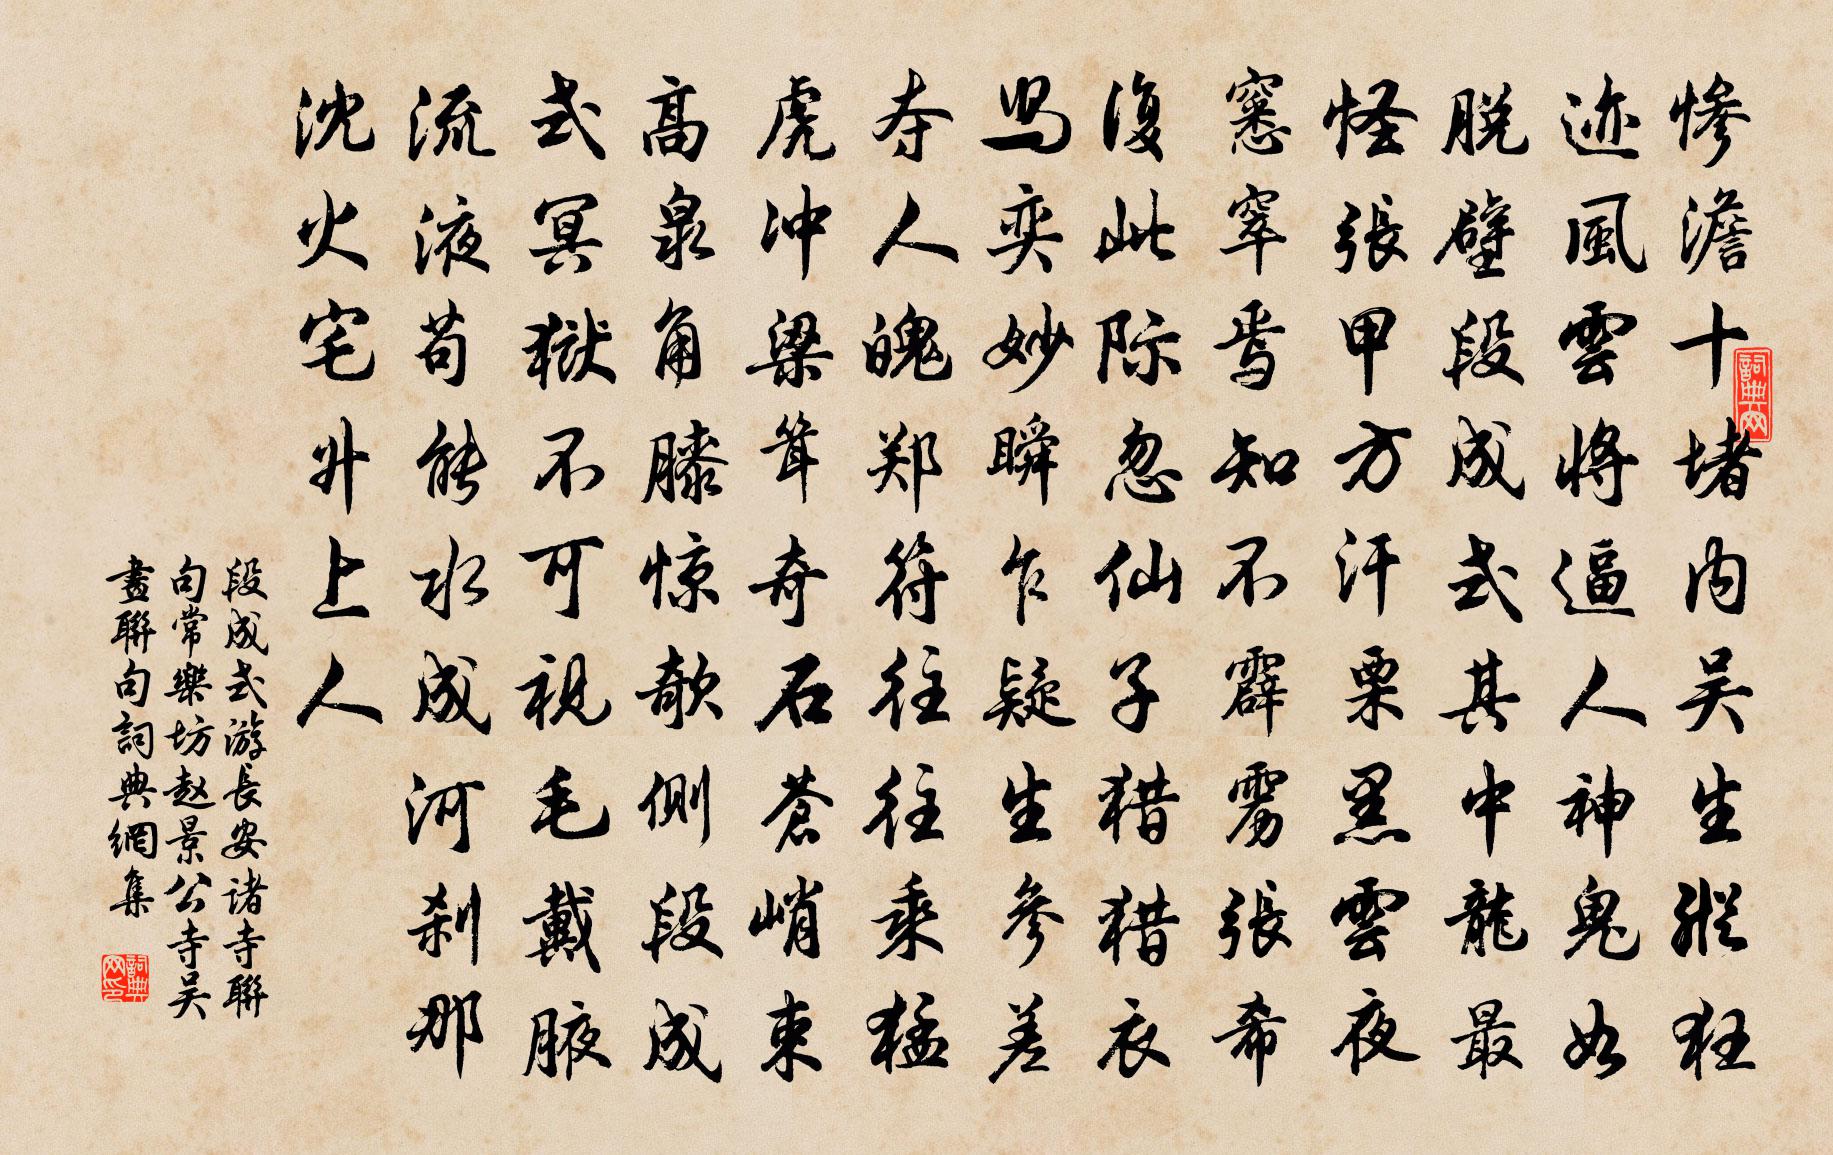 惨澹十堵内吴生縱狂
迹風雲将逼人神鬼如
脱壁段成式其中龍最
怪張甲方汗栗黑雲夜
窸窣焉知不霹雳張希
復此际忽仙子猎猎衣
舄奕妙瞬乍疑生参差
夺人魄郑符往往乘猛
虎冲梁耸奇石苍峭束
高泉角膝惊欹側段成
式冥獄不可視毛戴腋
流液苟能水成河刹那
沈火宅升上人
段成式游長安诸寺聯
句常樂坊赵景公寺吴
畫聯句詞典網集
詞典网
詞典网